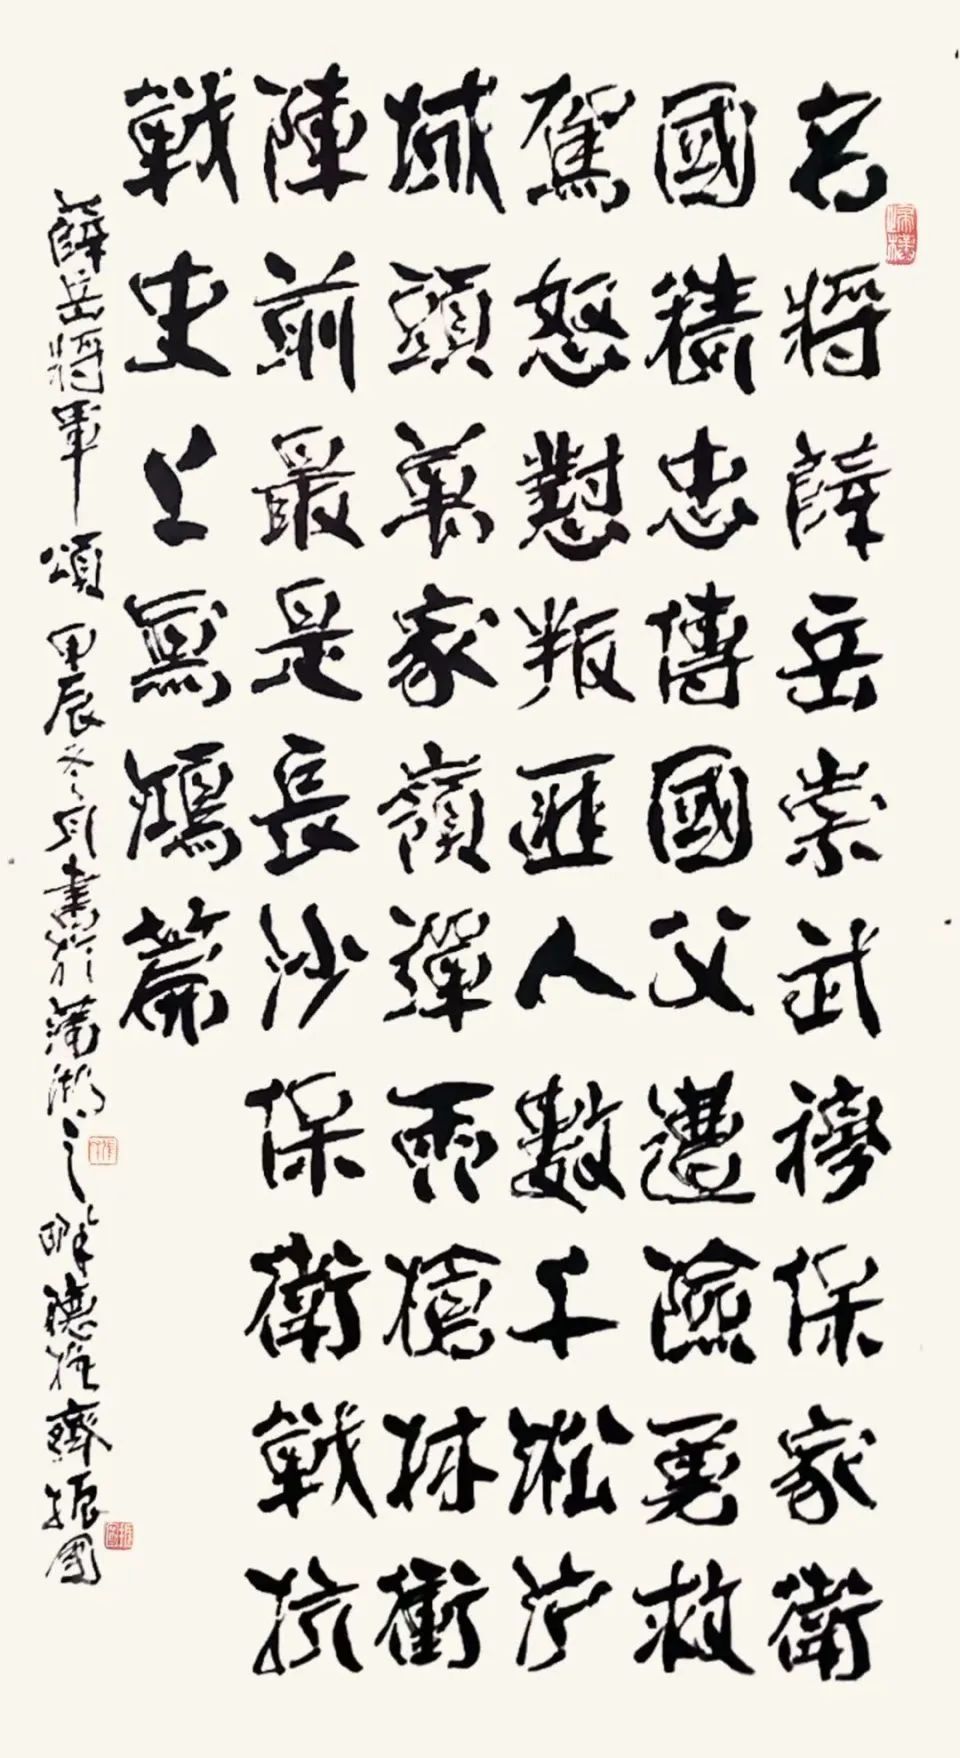 名将薛岳崇武襟保家衛
國積忠傳國父遭險勇救
駕怒懟叛匪人數千淞沪
城頭萬家嶺彈雨槍林衝
陣前最是長沙保衛戰抗
戰史上寫鴻篇
薛岳將軍頌甲辰冬月書於蒲湖之畔德旌齊振國